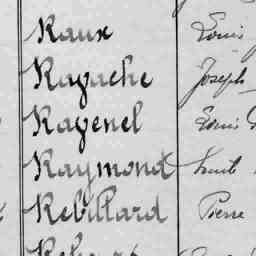 Raux Louis
Ragache Joseph
Ragenel Louis
Raymond Emile
Rebillard Pierre